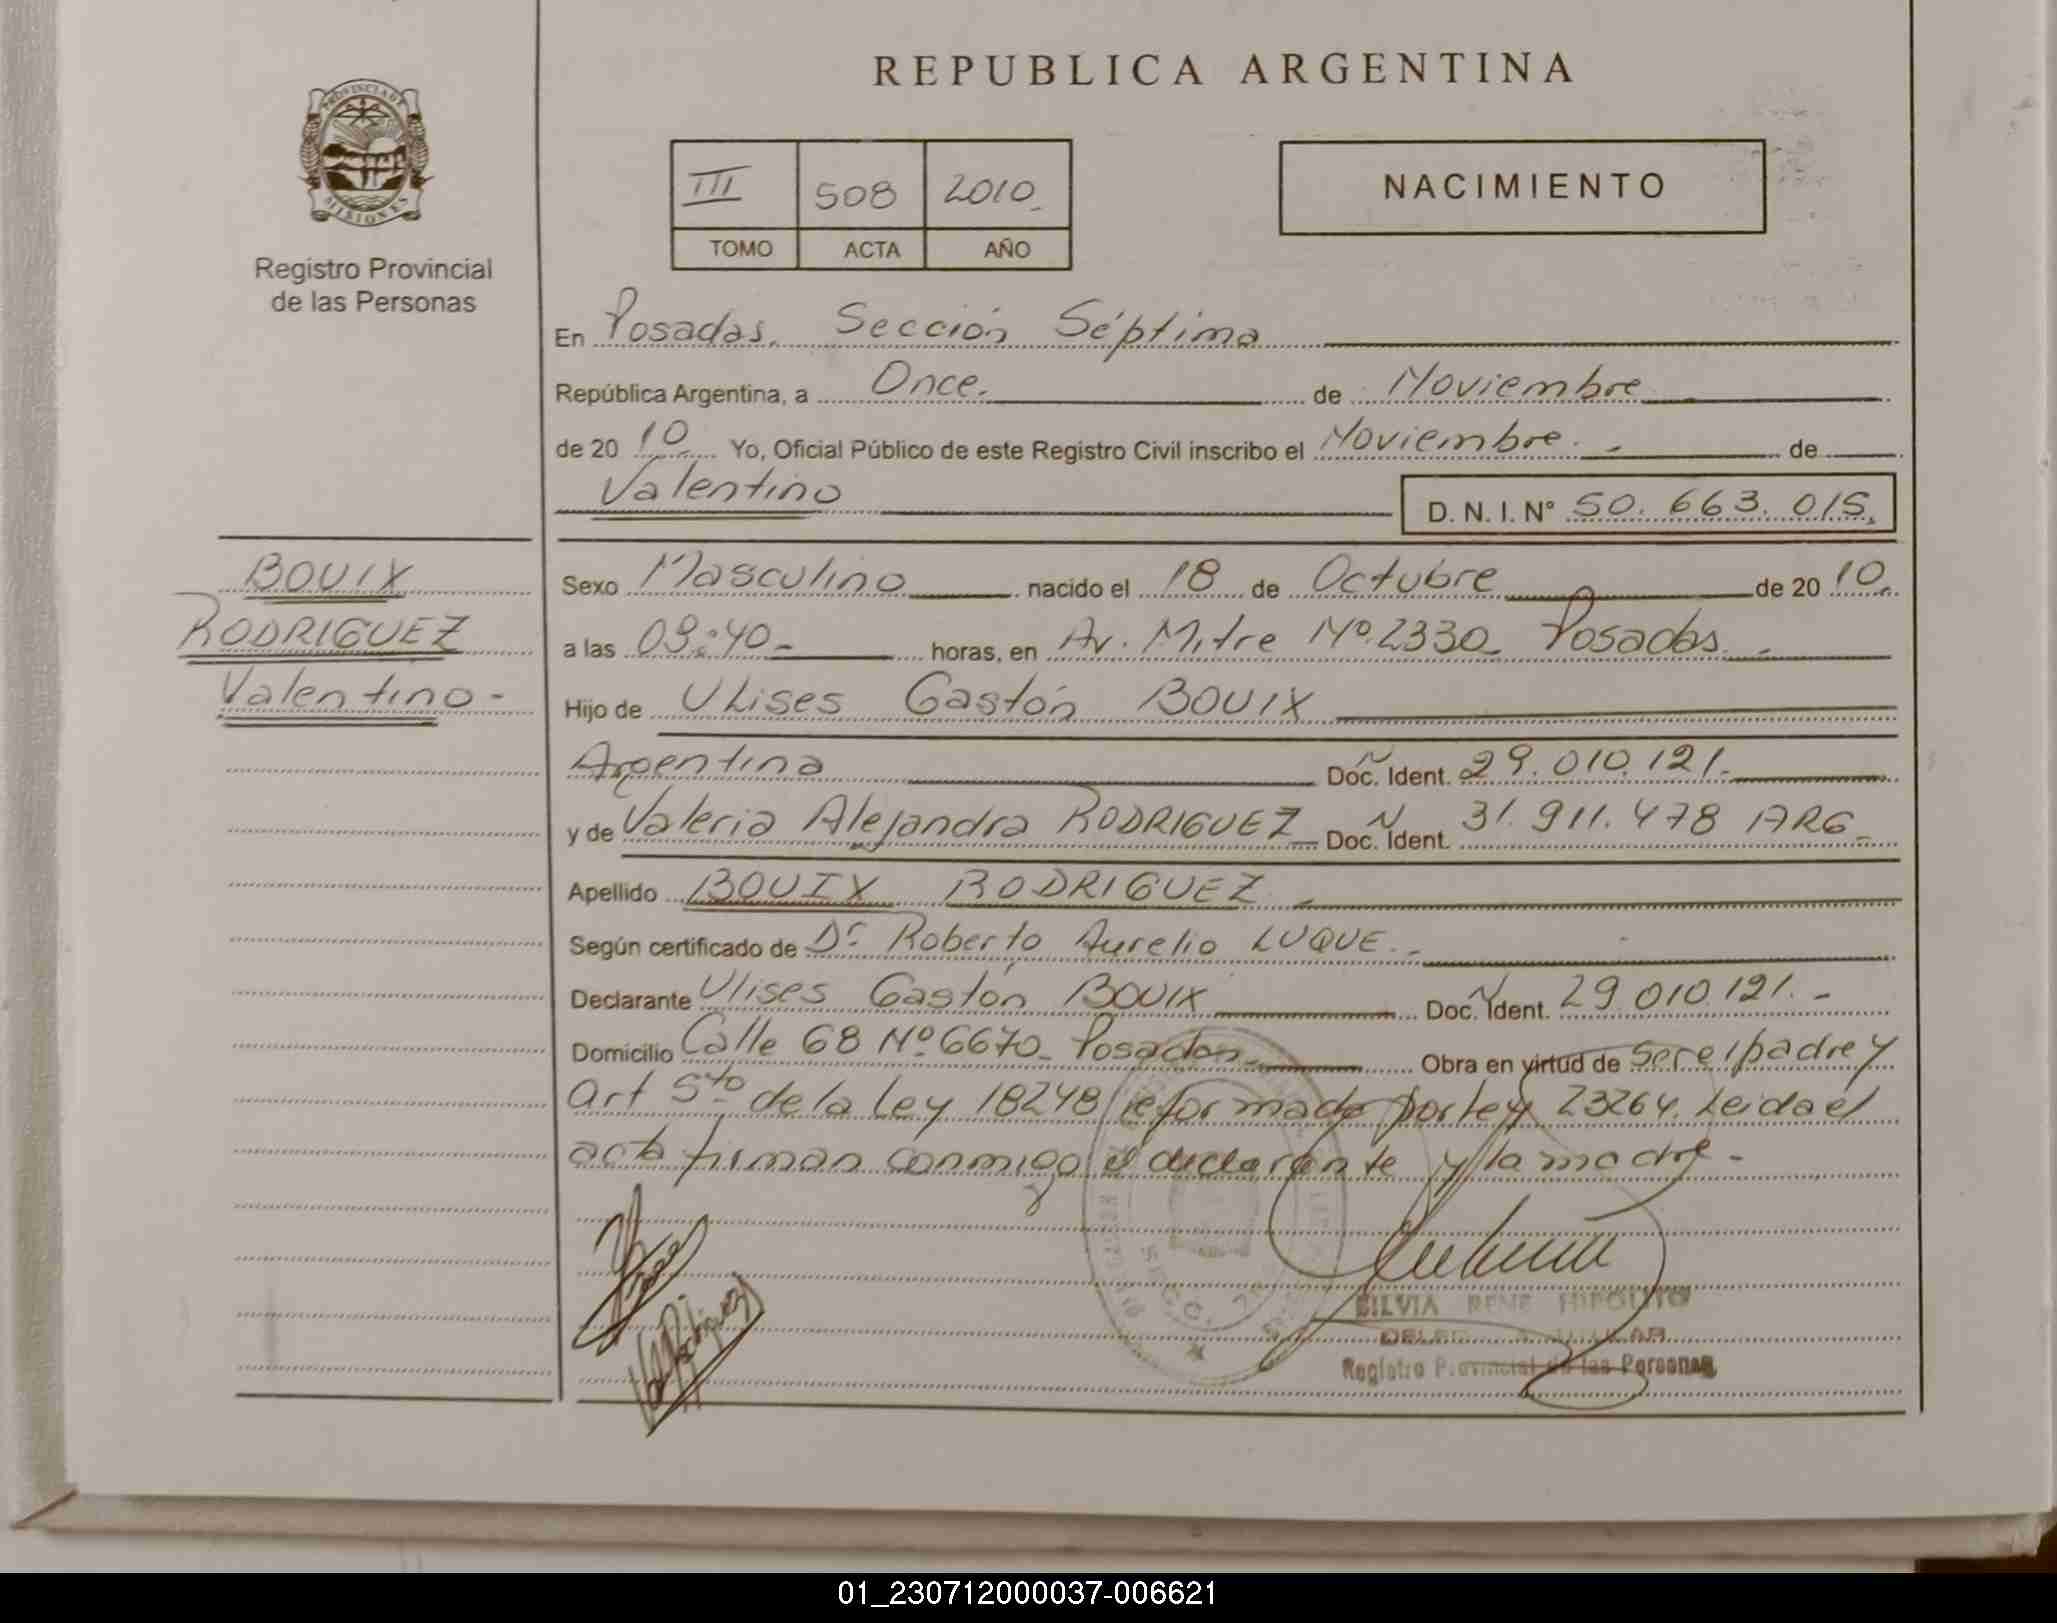 REPUBLICA ARGENTINA
PROVINCIA DE
MISIONES
Registro Provincial
de las Personas
III 508 2010
TOMO ACTA AÑO
NACIMIENTO
En Posadas, Sección Séptima
República Argentina, a Once. de Noviembre
de 20 10 Yo, Oficial Público de este Registro Civil inscribo el Noviembre. de
Valentino
D. N. I. N° 50. 663. 015.
BOUIX
RODRIGUEZ
Valentino -
Sexo Masculino nacido el 18 de Octubre de 20 10.
a las 09:40 horas, en Av. Mitre Nº 2330 Posadas
Hijo de Ulises Gastón BOUIX
Argentina Doc. Ident. 29.010.121.
y de Valeria Alejandra RODRIGUEZ Doc. Ident. 31.911.478 ARG
Apellido BOUIX RODRIGUEZ
Según certificado de Dr. Roberto Aurelio LUQUE.
Declarante Ulises Gastón BOUIX Doc. Ident. 29 010.121. -
Domicilio Calle 68 Nº 6670 Posadas Obra en virtud de ser el padre y
Art 5to de la Ley 18248 reformado por ley 23264. Leida el
acta firman conmigo el declarante y la madre -
SILVIA RENE HIPOLITO
Registro Provincial de las Personas
01_230712000037-006621